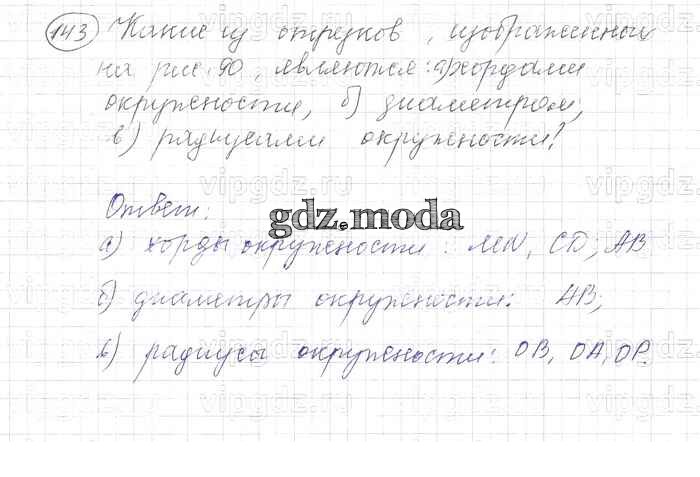 143 Какие из отрезков, изображенных
на рис. 90, являются: а) хордами
окружности, б) диаметром,
в) радиусами окружности?
Ответ:
gdz.moda
а) хорды окружности: MN, CD; AB
б) диаметры окружности: AB;
в) радиусы окружности: OB, OA, OP.
vipgdz.ru